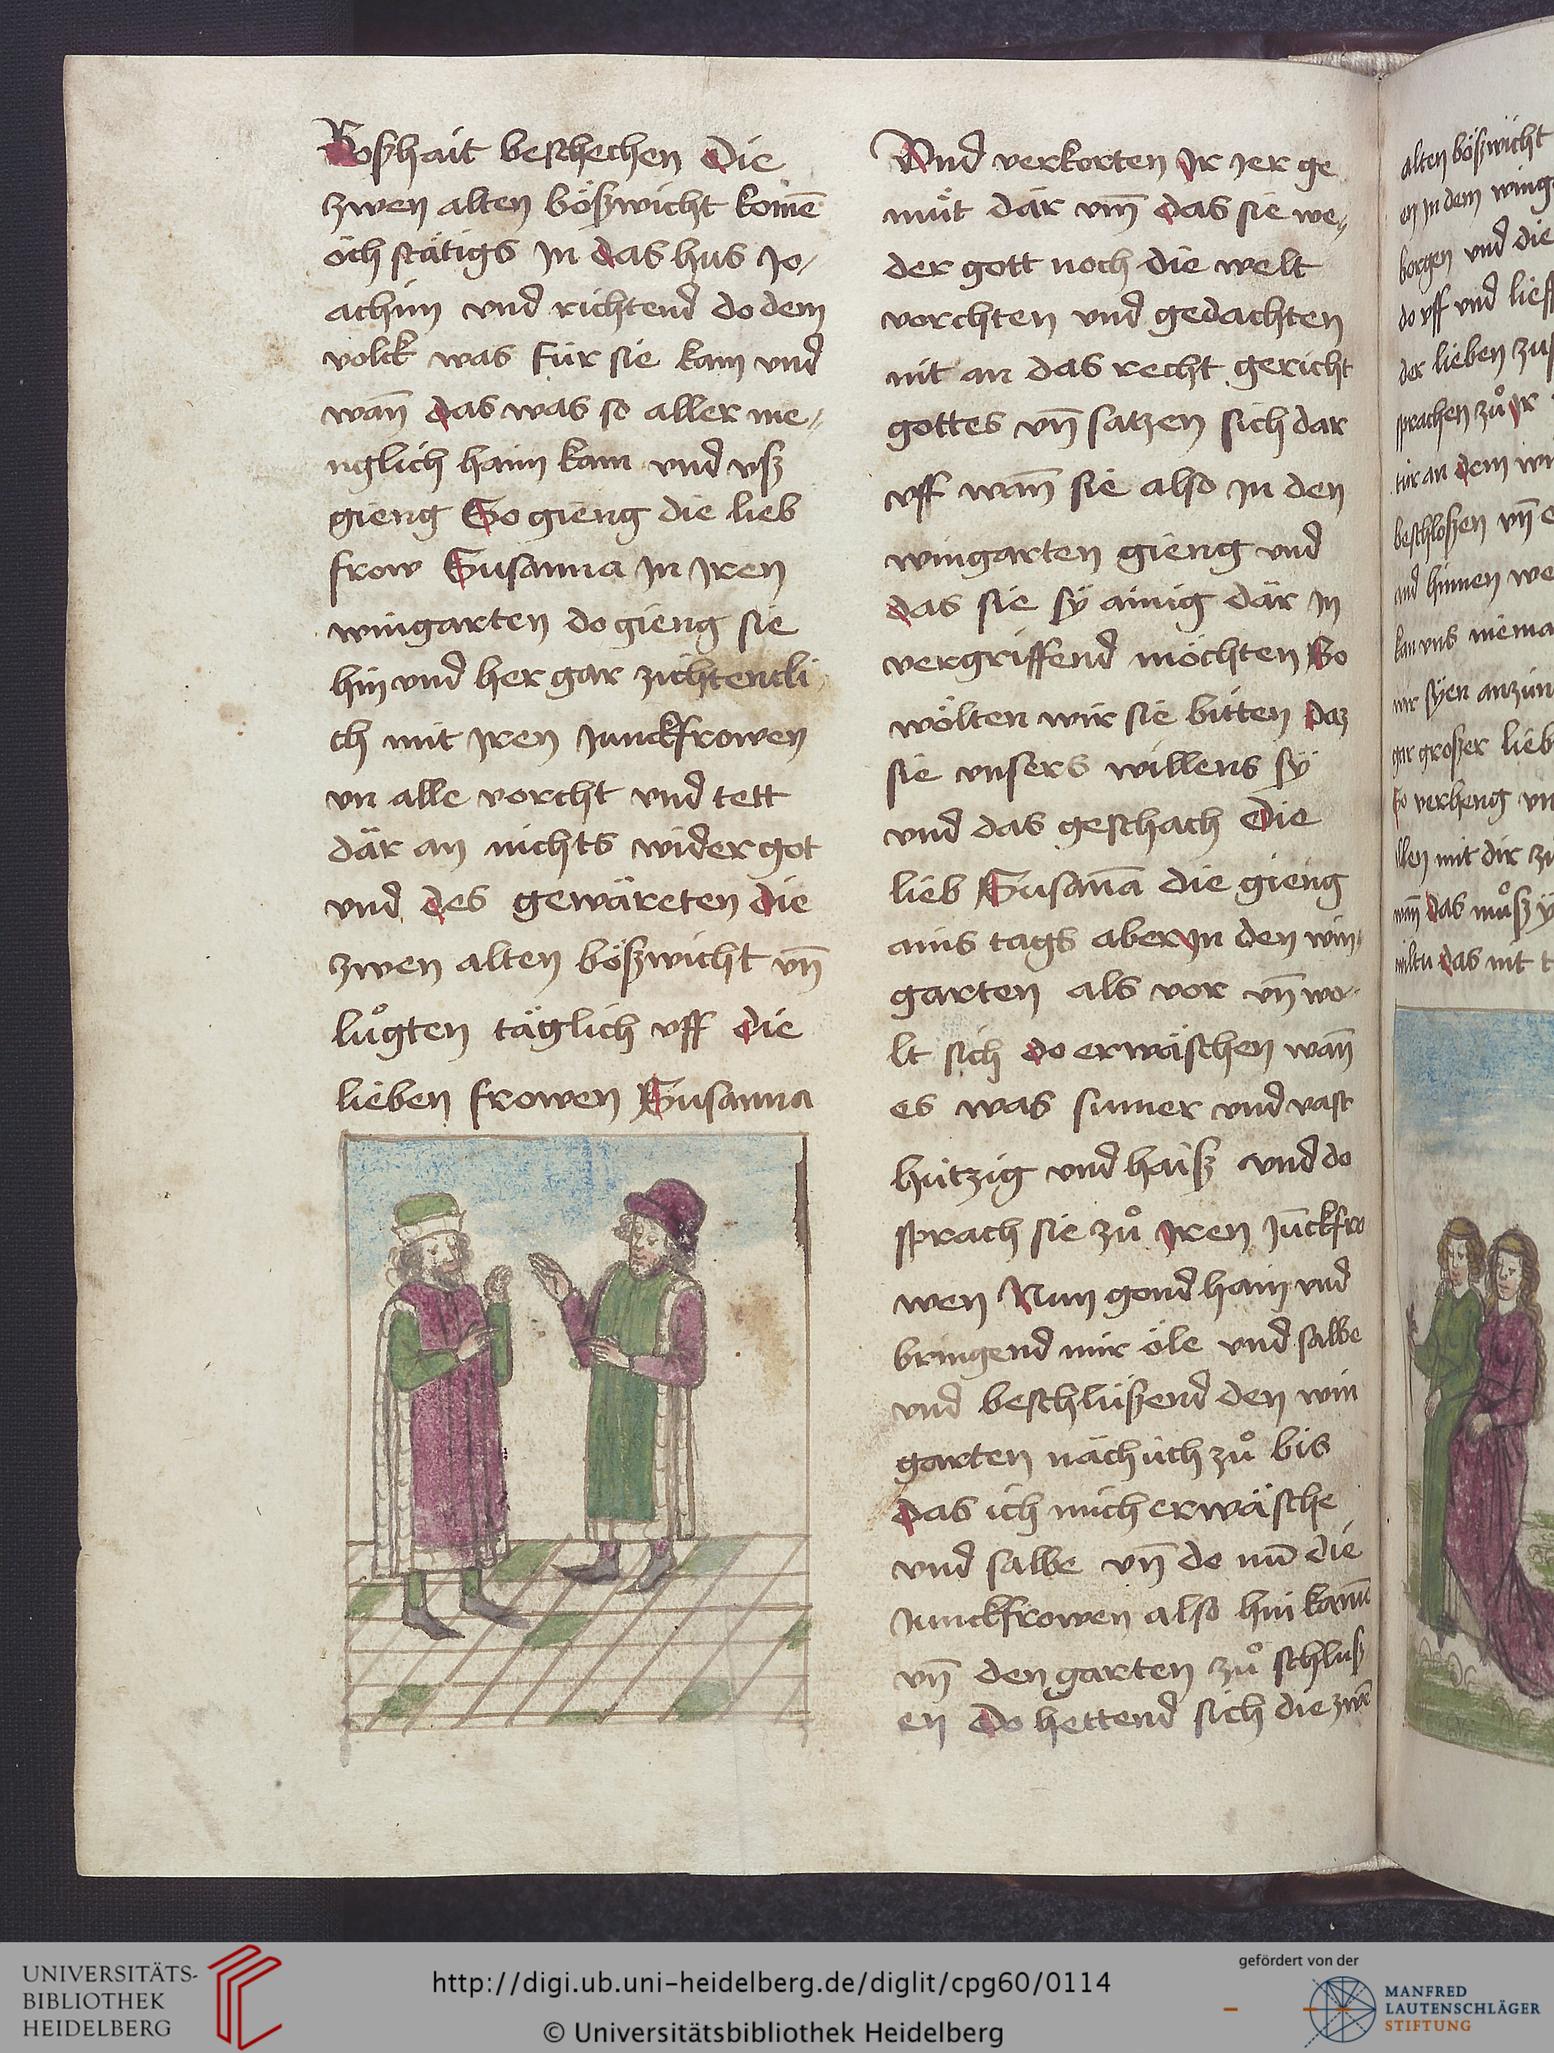 Boßhait beschechen Die
zwen alten bößwicht komē
och stätigs jn das hus jo⸗
achim vnd richtend do dem
volck was für sie kam vnd
wan̄ das was so aller me⸗
nglich haim kam vnd vß
gieng So gieng die lieb
frow Susanna jn jren
wingarten do gieng sie
hin vnd her gar zichtencli
ch mit jren junckfrowen
vn alle vorcht vnd tett
där an nichts wider got
vnd des gewäreten die
zwen alten bößwicht vn̄
luͦgten täglich vff die
lieben frowen Susanna
Vnd verkorten jr jer ge
müt där vm̄ das sie we⸗
der gott noch die welt
vorchten vnd gedachten
nit an das recht gericht
gottes vn̄ satzen sich dar
vff wan̄ sie also jn den
wingarten gieng vnd
das sie sÿ ainig där jn
vergriffend möchten So
wölten wir sie bitten daz
sie vnsers willens sÿ
vnd das geschach Die
lieb Susan̄a die gieng
ains tags aber jn den win⸗
garten als vor vn̄ wo⸗
lt sich do erwäschen wan̄
es was sumer vnd vast
hützig vnd haiß vnd do
sprach sie zuͦ jren jūckfro
wen Nun gond haim vnd
bringend mir öle vnd salbe
vnd beschlüßend den win
garten näch üch zuͦ bis
das ich mich erwäsche
vnd salbe vn̄ do nū die
junckfrowen also hin kamē
vn̄ den garten zuͦ schluß
en Do hettend sich die zwē
alten bößwicht
en jn dem wing
borgen vnd die
do vff vnd
der lieben
sprachen zuͦ jr
tür an dem
beschloßen vn̄
vnd hinnen we
kan vns niema
wir syen
gar großer lieb
So verheng vn
llen mit dir zu
wan̄ das muͦß
wiltu das nit
UNIVERSITÄTS-
BIBLIOTHEK
HEIDELBERG
http://digi.ub.uni-heidelberg.de/diglit/cpg60/0114
© Universitätsbibliothek Heidelberg
gefördert von der
MANFRED
LAUTENSCHLÄGER
STIFTUNG